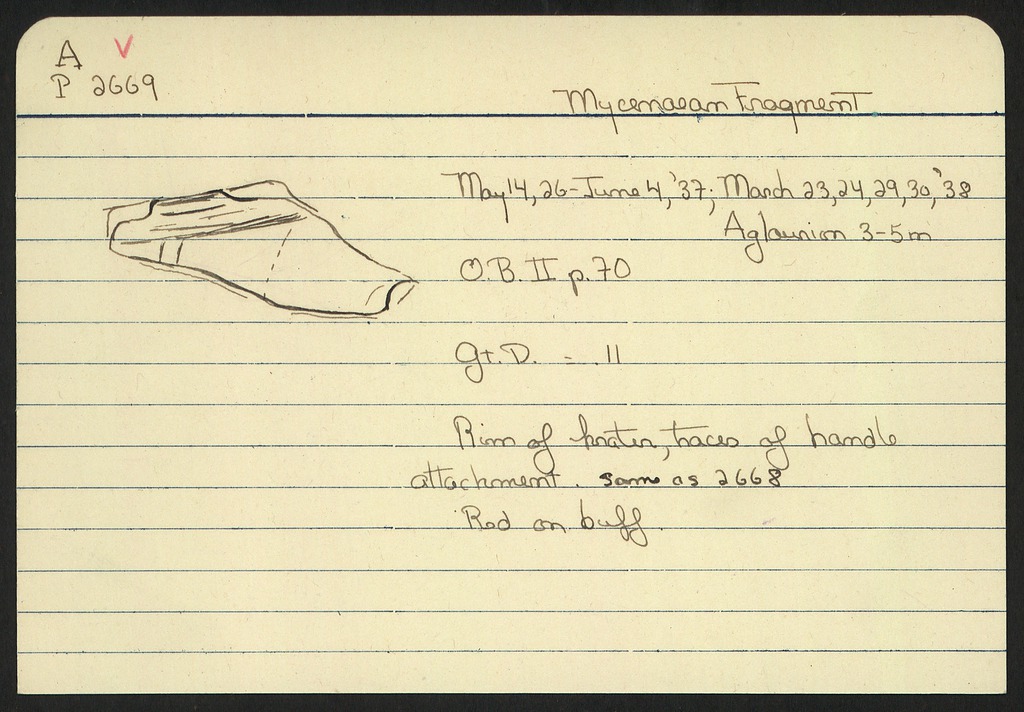 A V
P 2669
Mycenaean Fragment
May 14, 26-June 4, '37; March 23, 24, 29, 30, '38
Aglaurion 3-5m
O.B. II p. 70
Gt. D. = .11
Rim of krater, traces of handle
attachment. same as 2668
Red on buff.